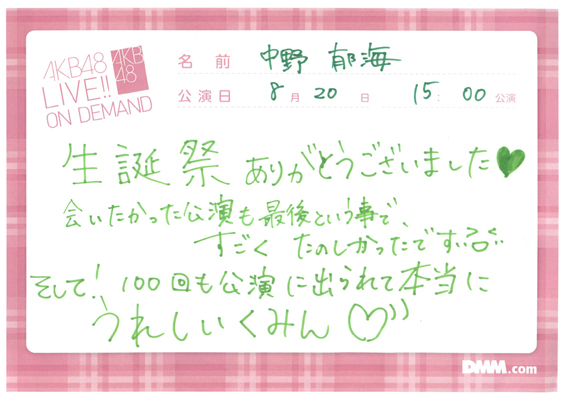 AKB48
LIVE!!
ON DEMAND
AKB
48
名前 中野 郁海
公演日 8月20日 15:00公演
生誕祭 ありがとうございました♥
会いたかった公演も最後という事で、
すごく たのしかったです
そして! 100回も公演に出られて本当に
うれしいくみん♡
DMM.com